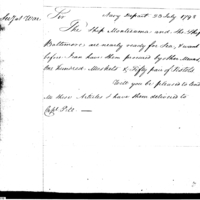 Secy at War.
Sir Navy Depart 23 July 1798
The Ship Montezuma and the Ship
Baltimore are nearly ready for Sea, & and
before I can have them prepared by other Means,
One Hundred Muskets & Fifty pair of Pistols
Will you be pleased to lend
me these Articles & have them delivered to
Capt